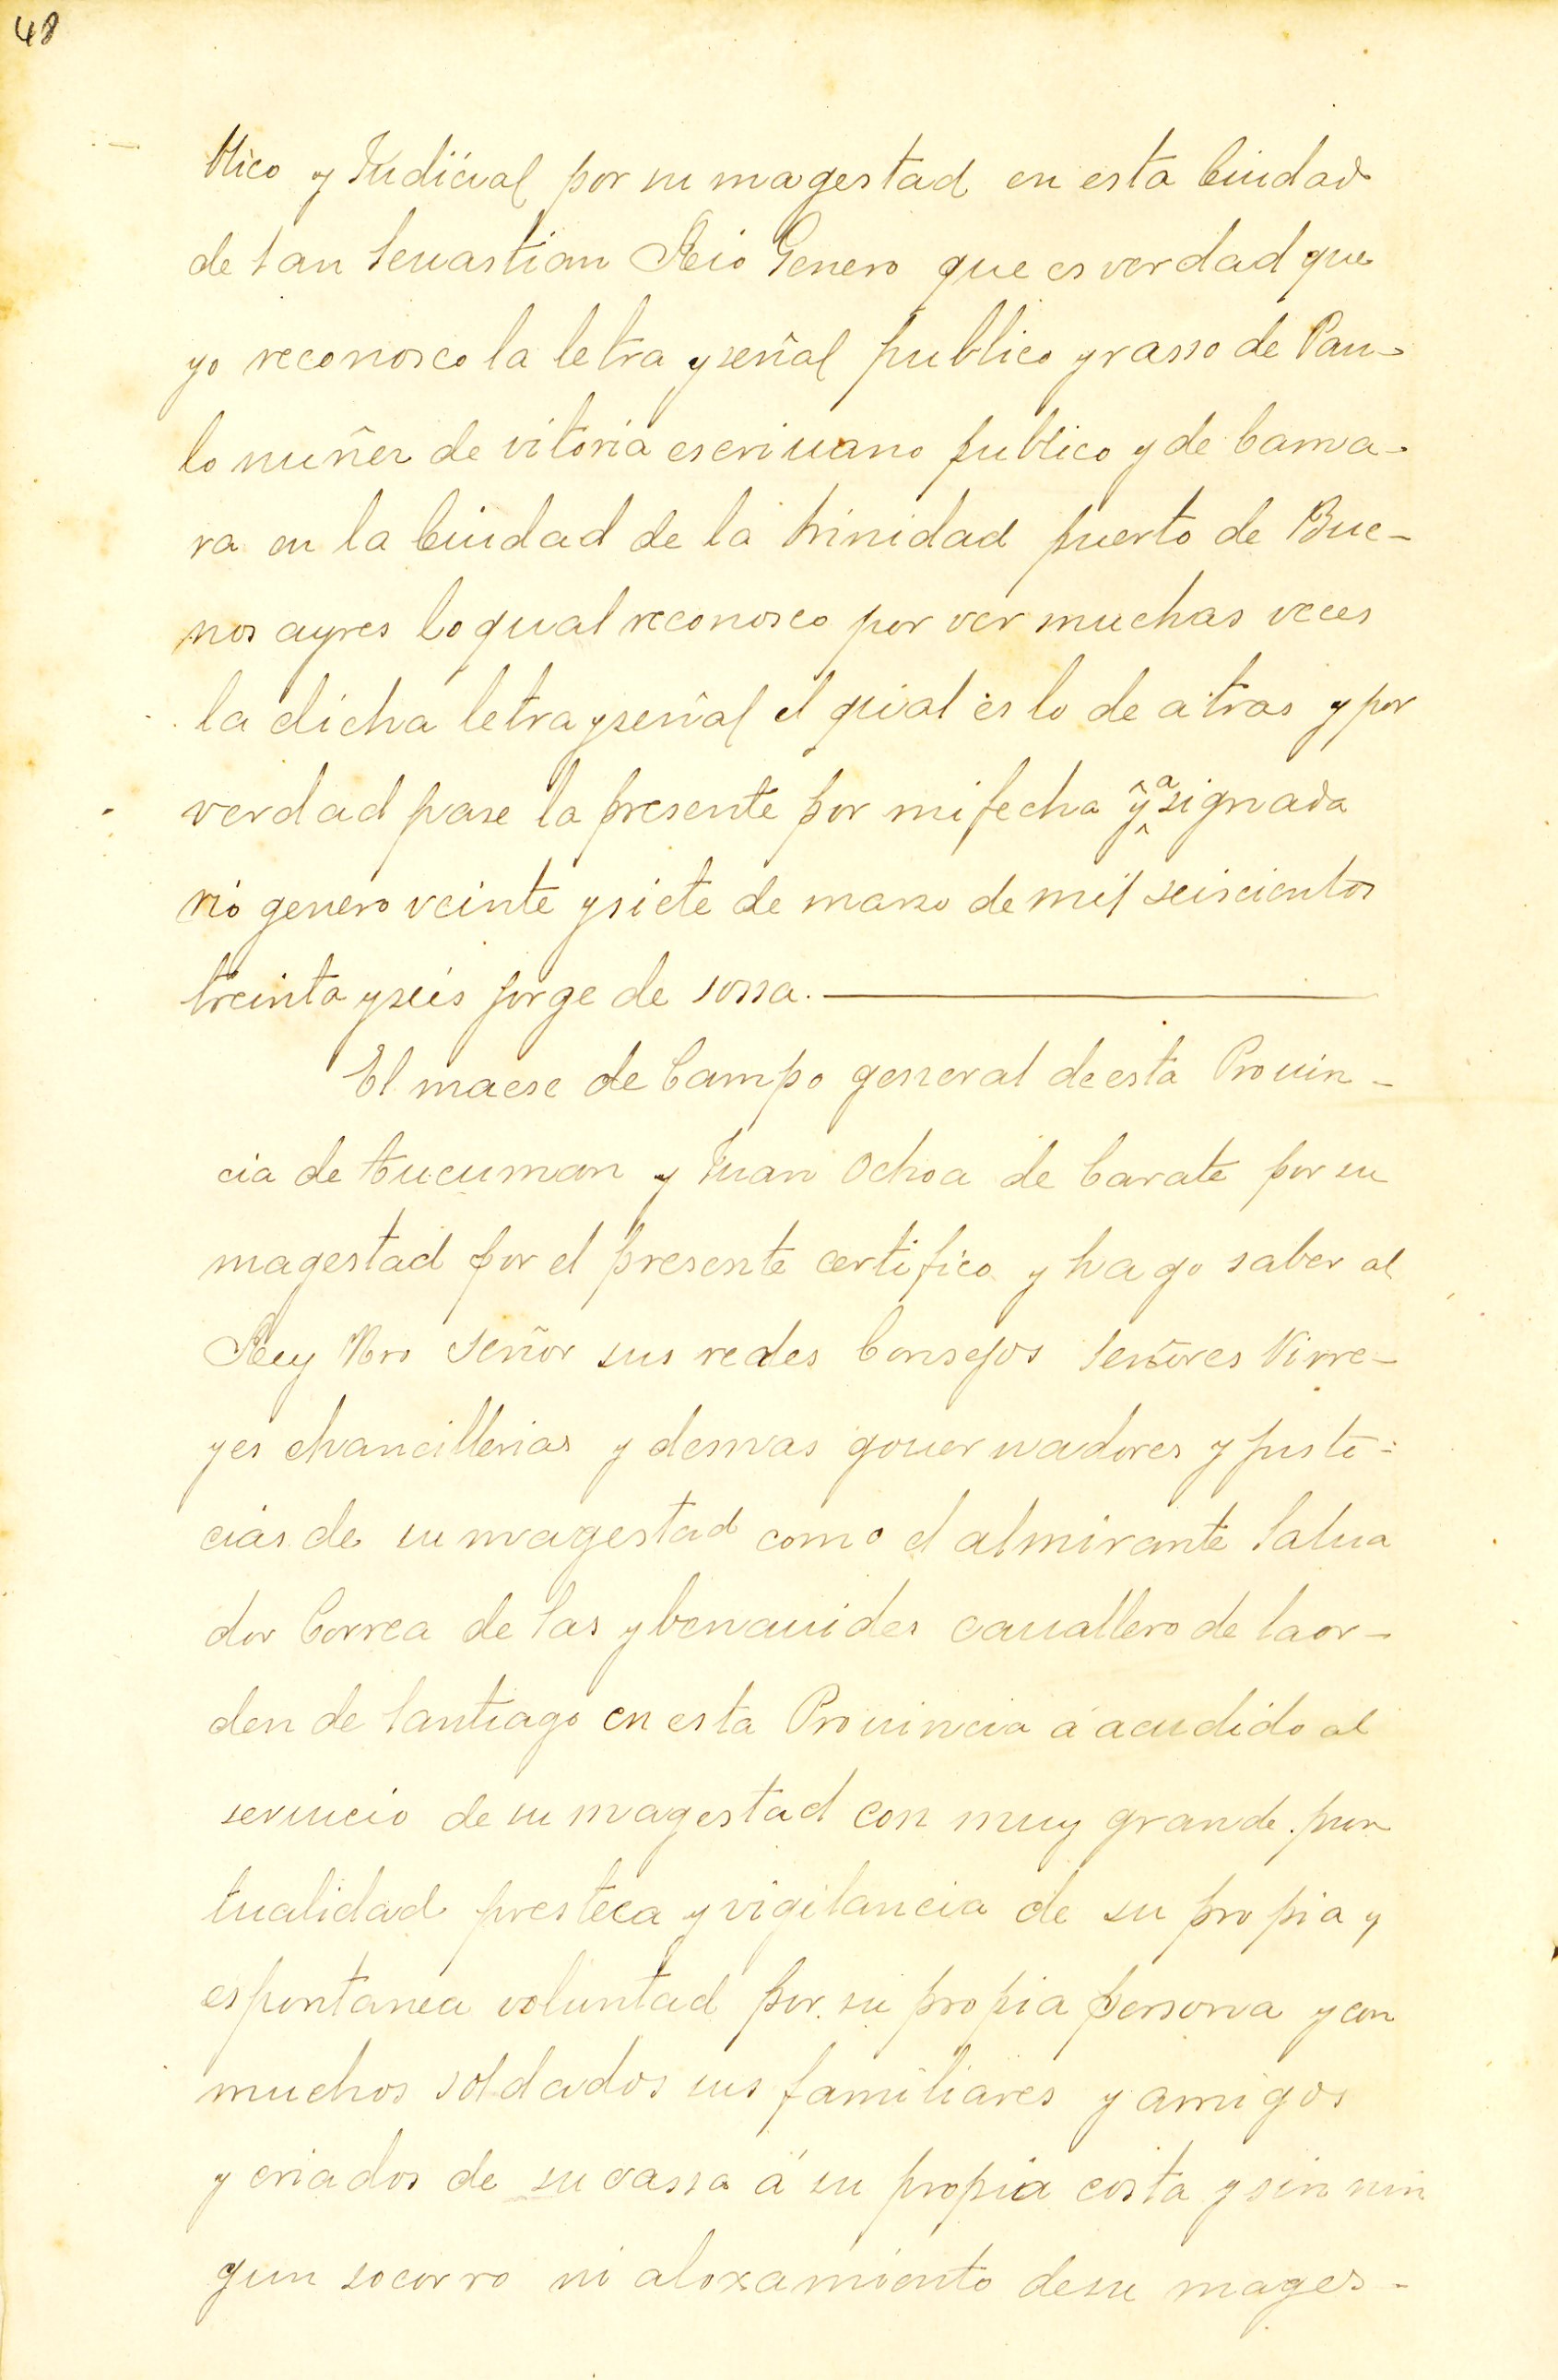 48
blico y Judicial por su magestad en esta Ciudad
de San Seuastian Rio Genero que es verdad que
yo reconosco la letra y señal publico y rasso de Pau-
lo nuñez de vitoria escriuano publico y de Camva-
ra en la Ciudad de la trinidad puerto de Bue-
nos ayres lo qual reconosco por ver muchas veces
la dicha letra y señal el qual es lo de atras y por
verdad pase la presente por mi fecha y asignada
rio genero veinte y siete de marzo de mil seiscientos
treinta y seis Jorge de sossa.
El maese de Campo general de esta Prouin-
cia de tucuman y Juan Ochoa de Carate por su
magestad por el presente certifico y hago saber al
Rey Nro Señor sus reales Consejos Señores Virre-
yes chancillerias y demas gouernadores y justi-
cias de su magestad como el almirante Salua
dor Correa de Sas y benauides cauallero de la or-
den de Santiago en esta Prouincia á acudido al
seruicio de su magestad con muy grande pun
tualidad presteca y vigilancia de su propia y
espontanea voluntad por su propia persona y con
muchos soldados sus familiares y amigos
y criados de su cassa á su propia costa y sin nin
gun socorro ni aloxamiento de su mages-